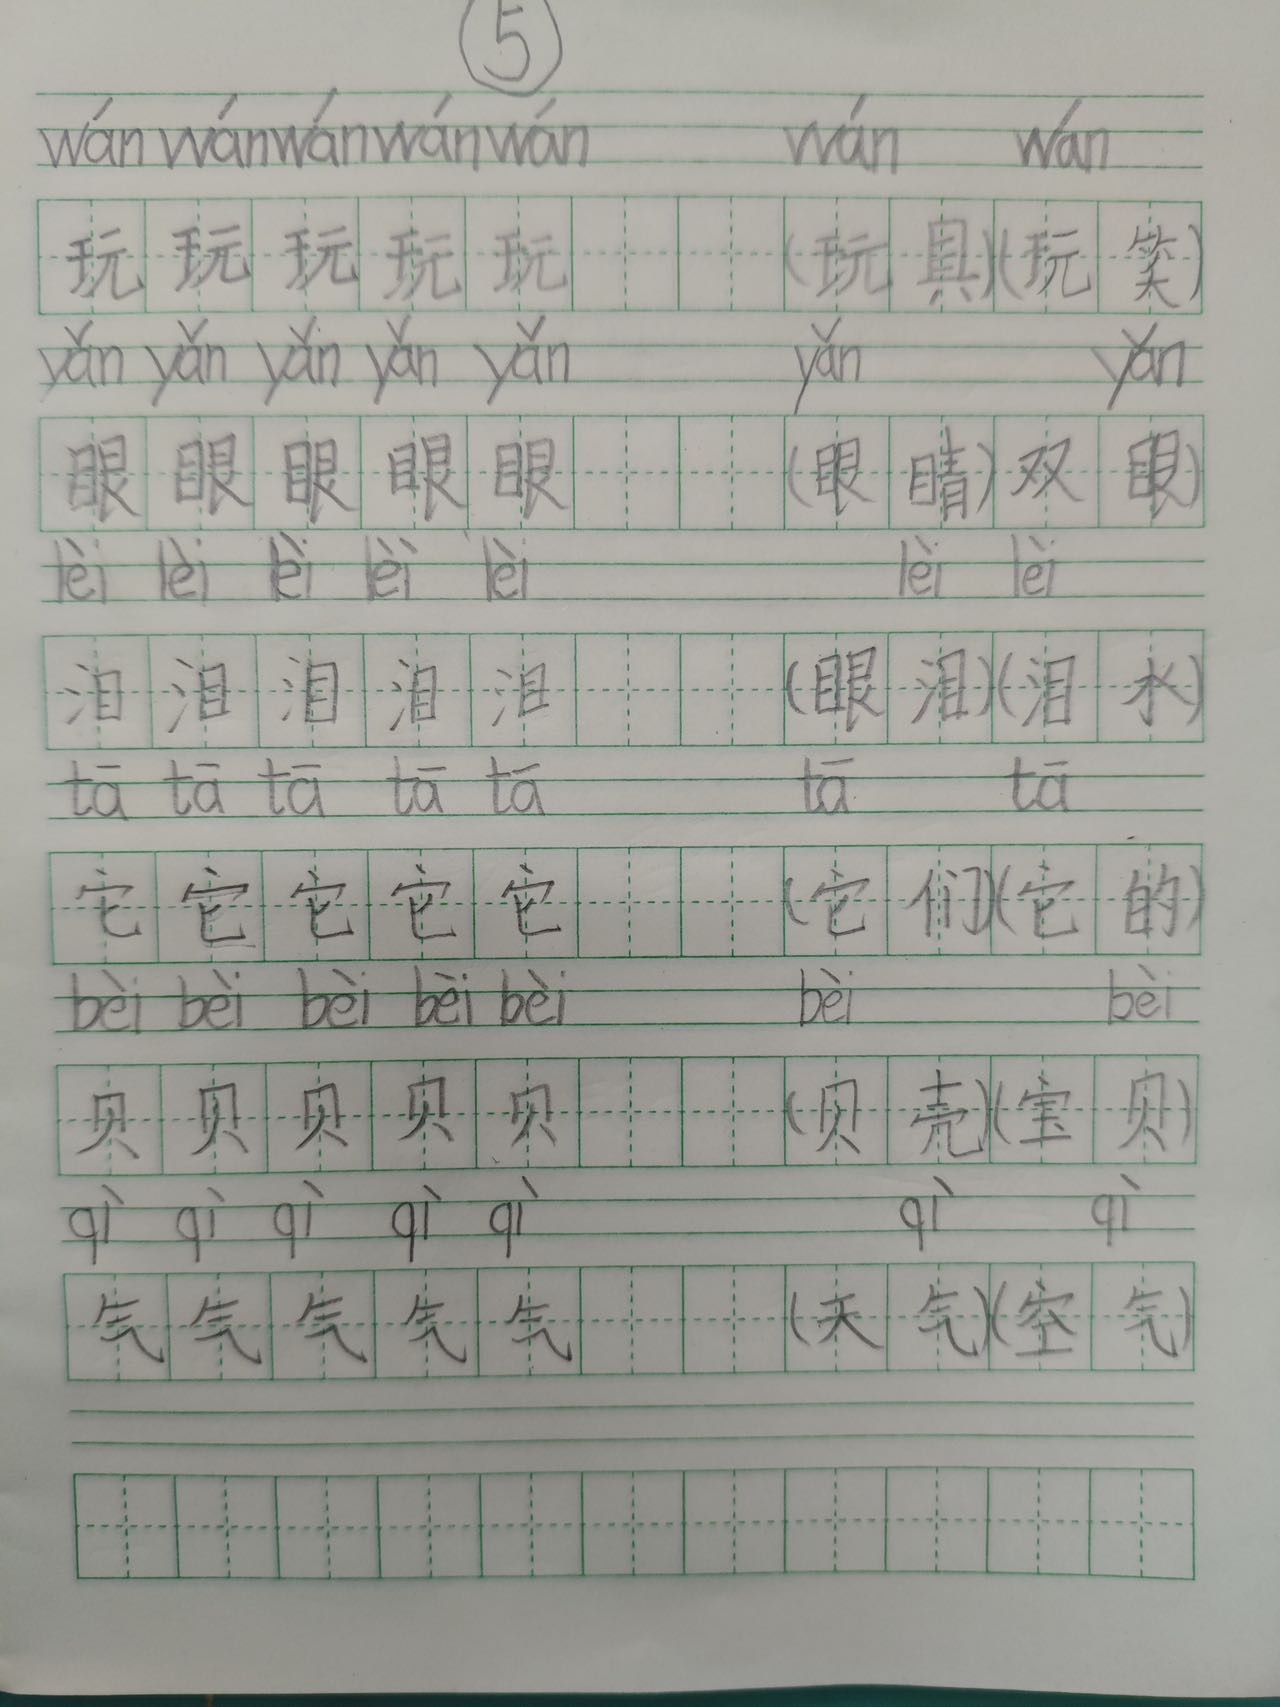 5
wán wán wán wán wán wán wán
玩 玩 玩 玩 玩 (玩 具)(玩 笑)
yǎn yǎn yǎn yǎn yǎn yǎn yǎn
眼 眼 眼 眼 眼 (眼 睛) 双 眼)
lèi lèi lèi lèi lèi lèi lèi
泪 泪 泪 泪 泪 (眼 泪)(泪 水)
tā tā tā tā tā tā tā
它 它 它 它 它 (它 们)(它 的)
bèi bèi bèi bèi bèi bèi bèi
贝 贝 贝 贝 贝 (贝 壳)(宝 贝)
qì qì qì qì qì qì qì
气 气 气 气 气 (天 气)(空 气)